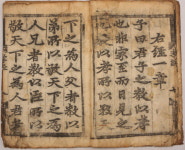 右經一章
子曰君子之教以孝
也非家至而日見之
也教以孝所以敬天
下之為人父者教以
弟所以敬天下之為
人兄者教以臣所以
敬天下之為人君者